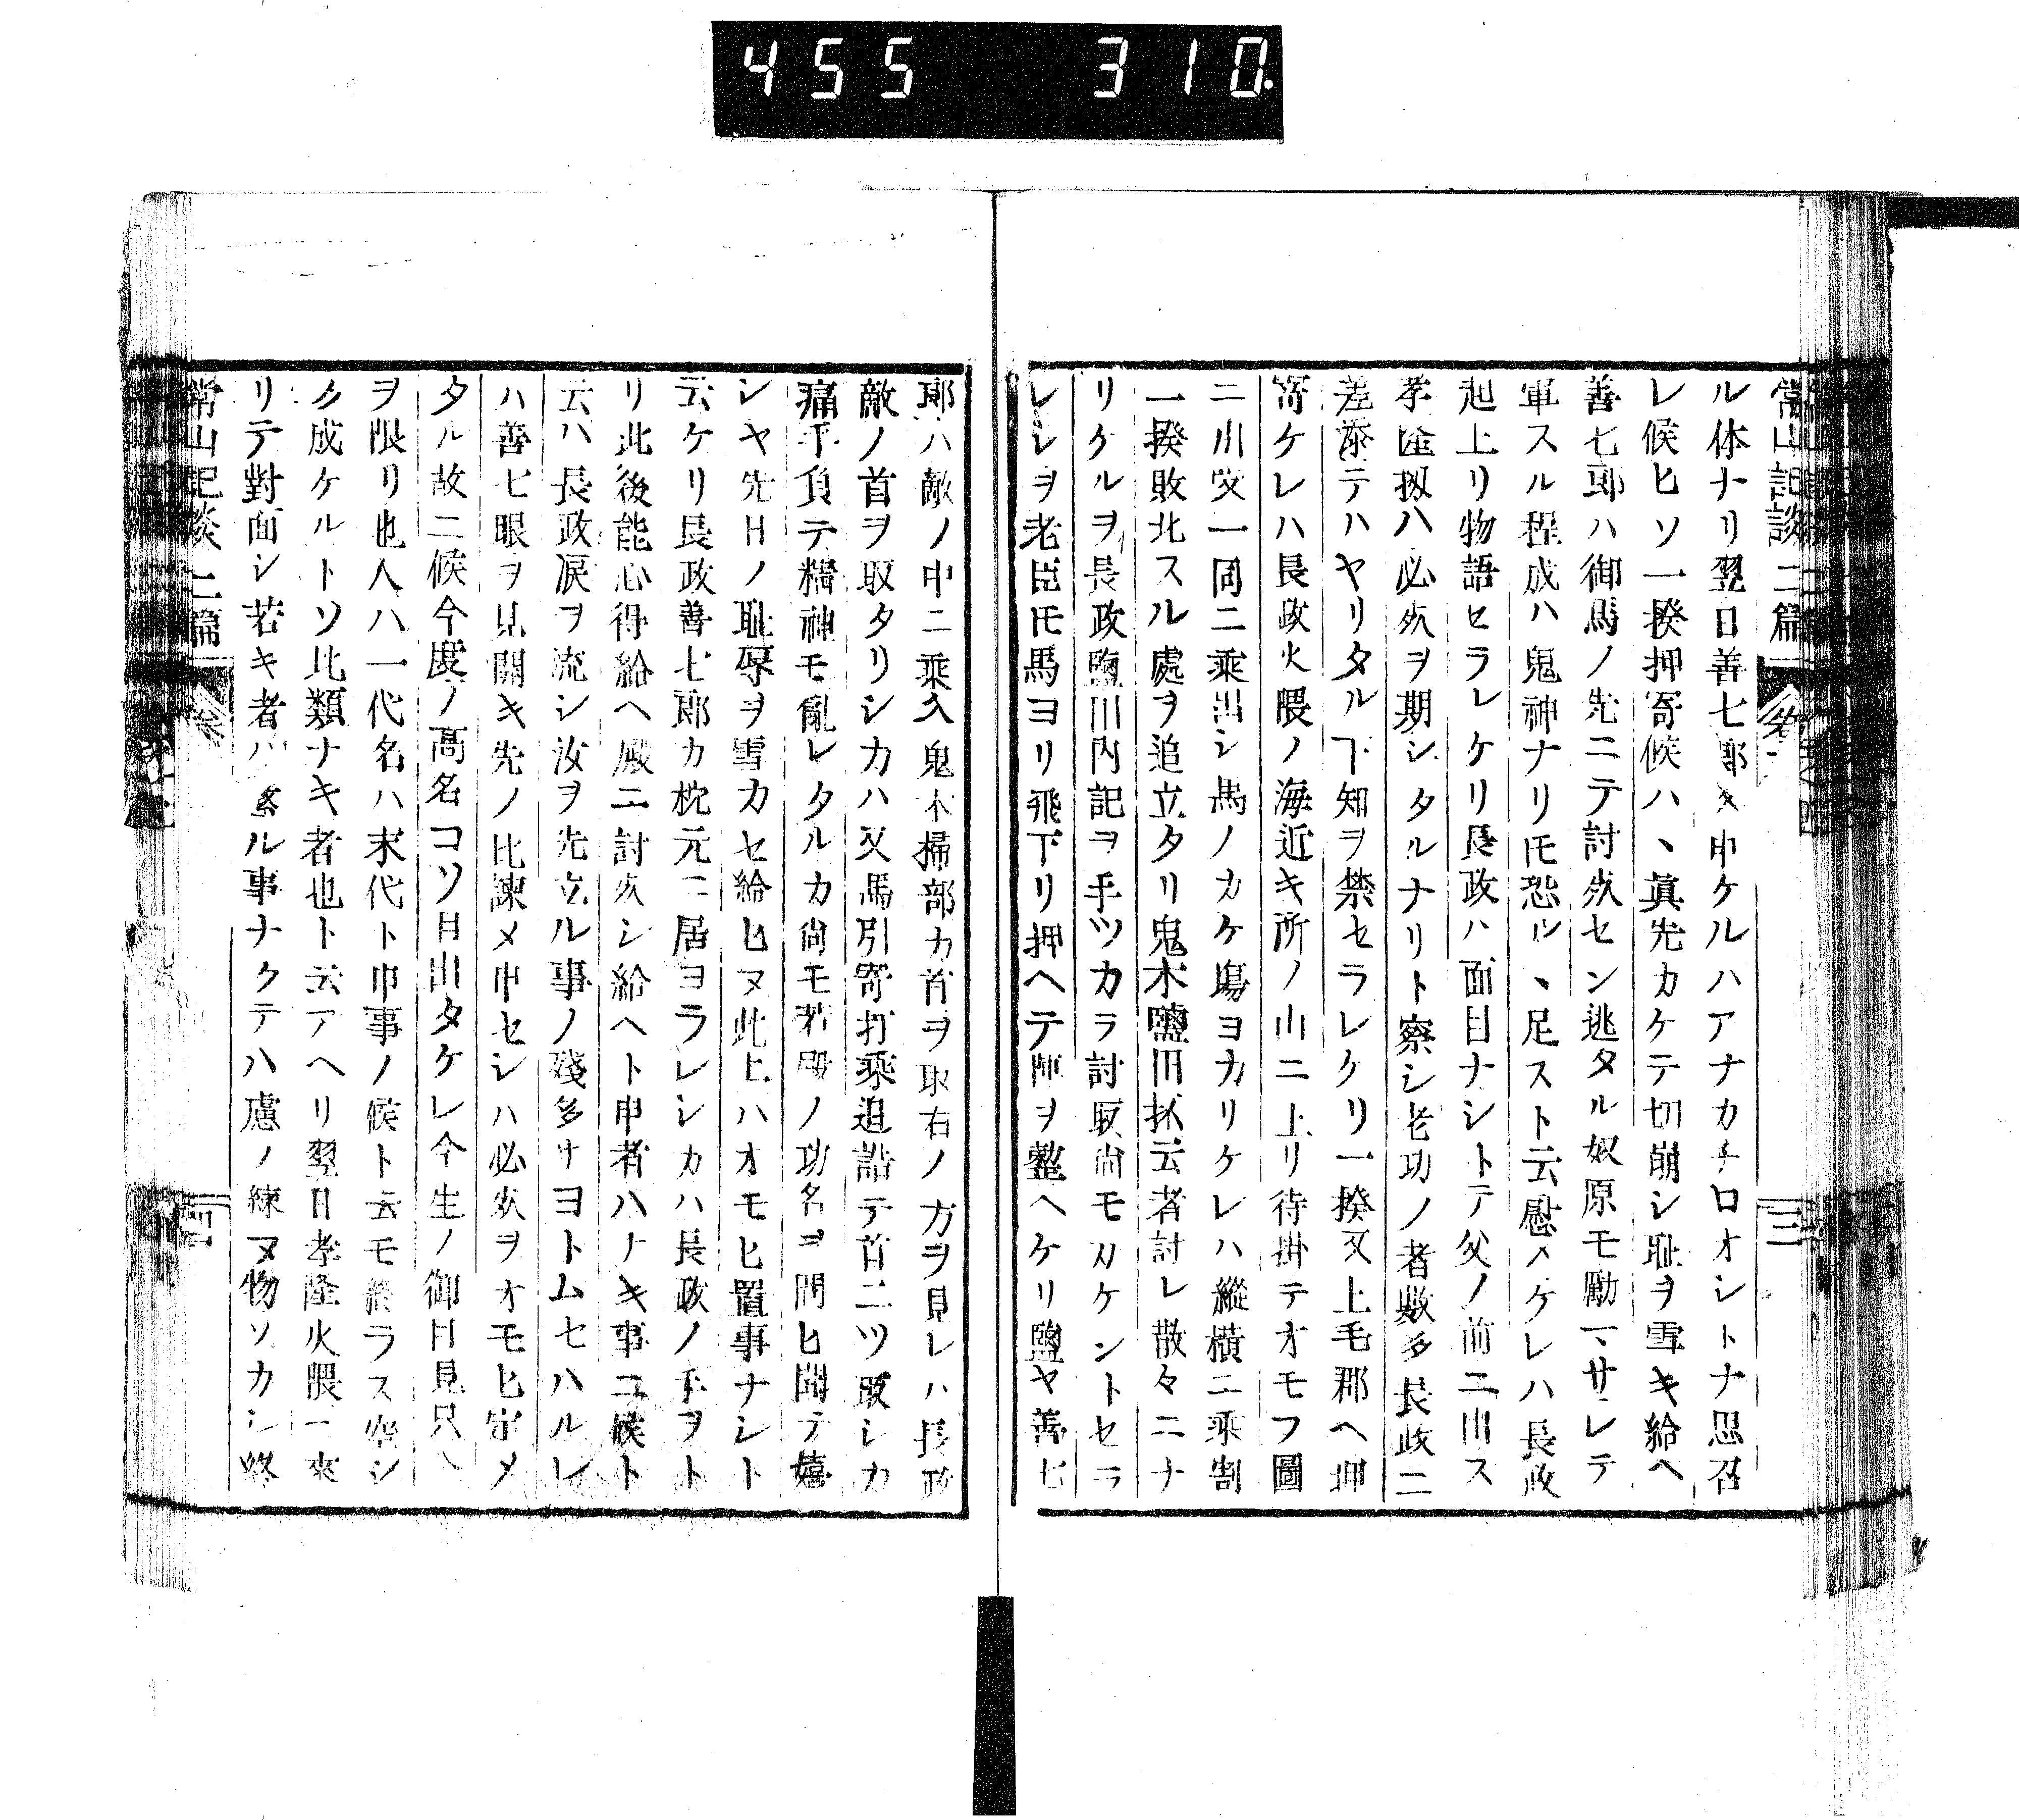 455 310.
常山記談 二篇
三
ル体ナリ翌日善七郎又申ケルハアナカチ口オシトナ思召
レ候ヒソ一揆押寄候ハヽ眞先カケテ切崩シ耻ヲ雪キ給ヘ
善七郎ハ御馬ノ先ニテ討死セン逃タル奴原モ勵マサレテ
軍スル程成ハ鬼神ナリ𪜈恐ルヽ足スト云慰メケレハ長政
起上リ物語セラレケリ長政ハ面目ナシトテ父ノ前ニ出ス
孝隆扨ハ必死ヲ期シタルナリト察シ老功ノ者數多長政ニ
差添テハヤリタル下知ヲ禁セラレケリ一揆又上毛郡ヘ押
寄ケレハ長政火隈ノ海近キ所ノ山ニ上リ待掛テオモフ圖
ニ引受一同ニ乘出シ馬ノカケ塲ヨカリケレハ縱橫ニ乘割
一揆敗北スル處ヲ追立タリ鬼木鹽田抔云者討レ散々ニナ
リケルヲ長政鹽川内記ヲ手ツカラ討取尚モカケントセラ
レシヲ老臣𪜈馬ヨリ飛下リ押ヘテ陣ヲ整ヘケリ鹽ヤ善七
郎ハ敵ノ中ニ乘入鬼木掃部カ首ヲ取右ノ方ヲ見レハ長政
敵ノ首ヲ取タリシカハ又馬引寄打乘追詰テ首二ツ取シカ
痛手負テ精神モ亂レタルカ尚モ若殿ノ功名ヲ問ヒ聞テ嬉
シヤ先日ノ耻辱ヲ雪カセ給ヒヌ此上ハオモヒ置事ナシト
云ケリ長政善七郎カ枕元ニ居ヨラレシカハ長政ノ手ヲト
リ此後能心得給ヘ殿ニ討死シ給ヘト申者ハナキ事ニ候ト
云ハ長政涙ヲ流シ汝ヲ先立ル事ノ殘多サヨトムセハルレ
ハ善七眼ヲ見開キ先ノ比諫メ申セシハ必死ヲオモヒ定メ
タル故ニ候今度ノ高名コソ目出タケレ今生ノ御目見只今
ヲ限リ也人ハ一代名ハ末代ト申事ノ候ト云モ終ラス空シ
ク成ケルトソ比類ナキ者也ト云アヘリ翌日孝隆火隈ニ來
リテ對面シ若キ者ハ斯ル事ナクテハ慮ノ練ヌ物ソカシ終
常山記談 二篇